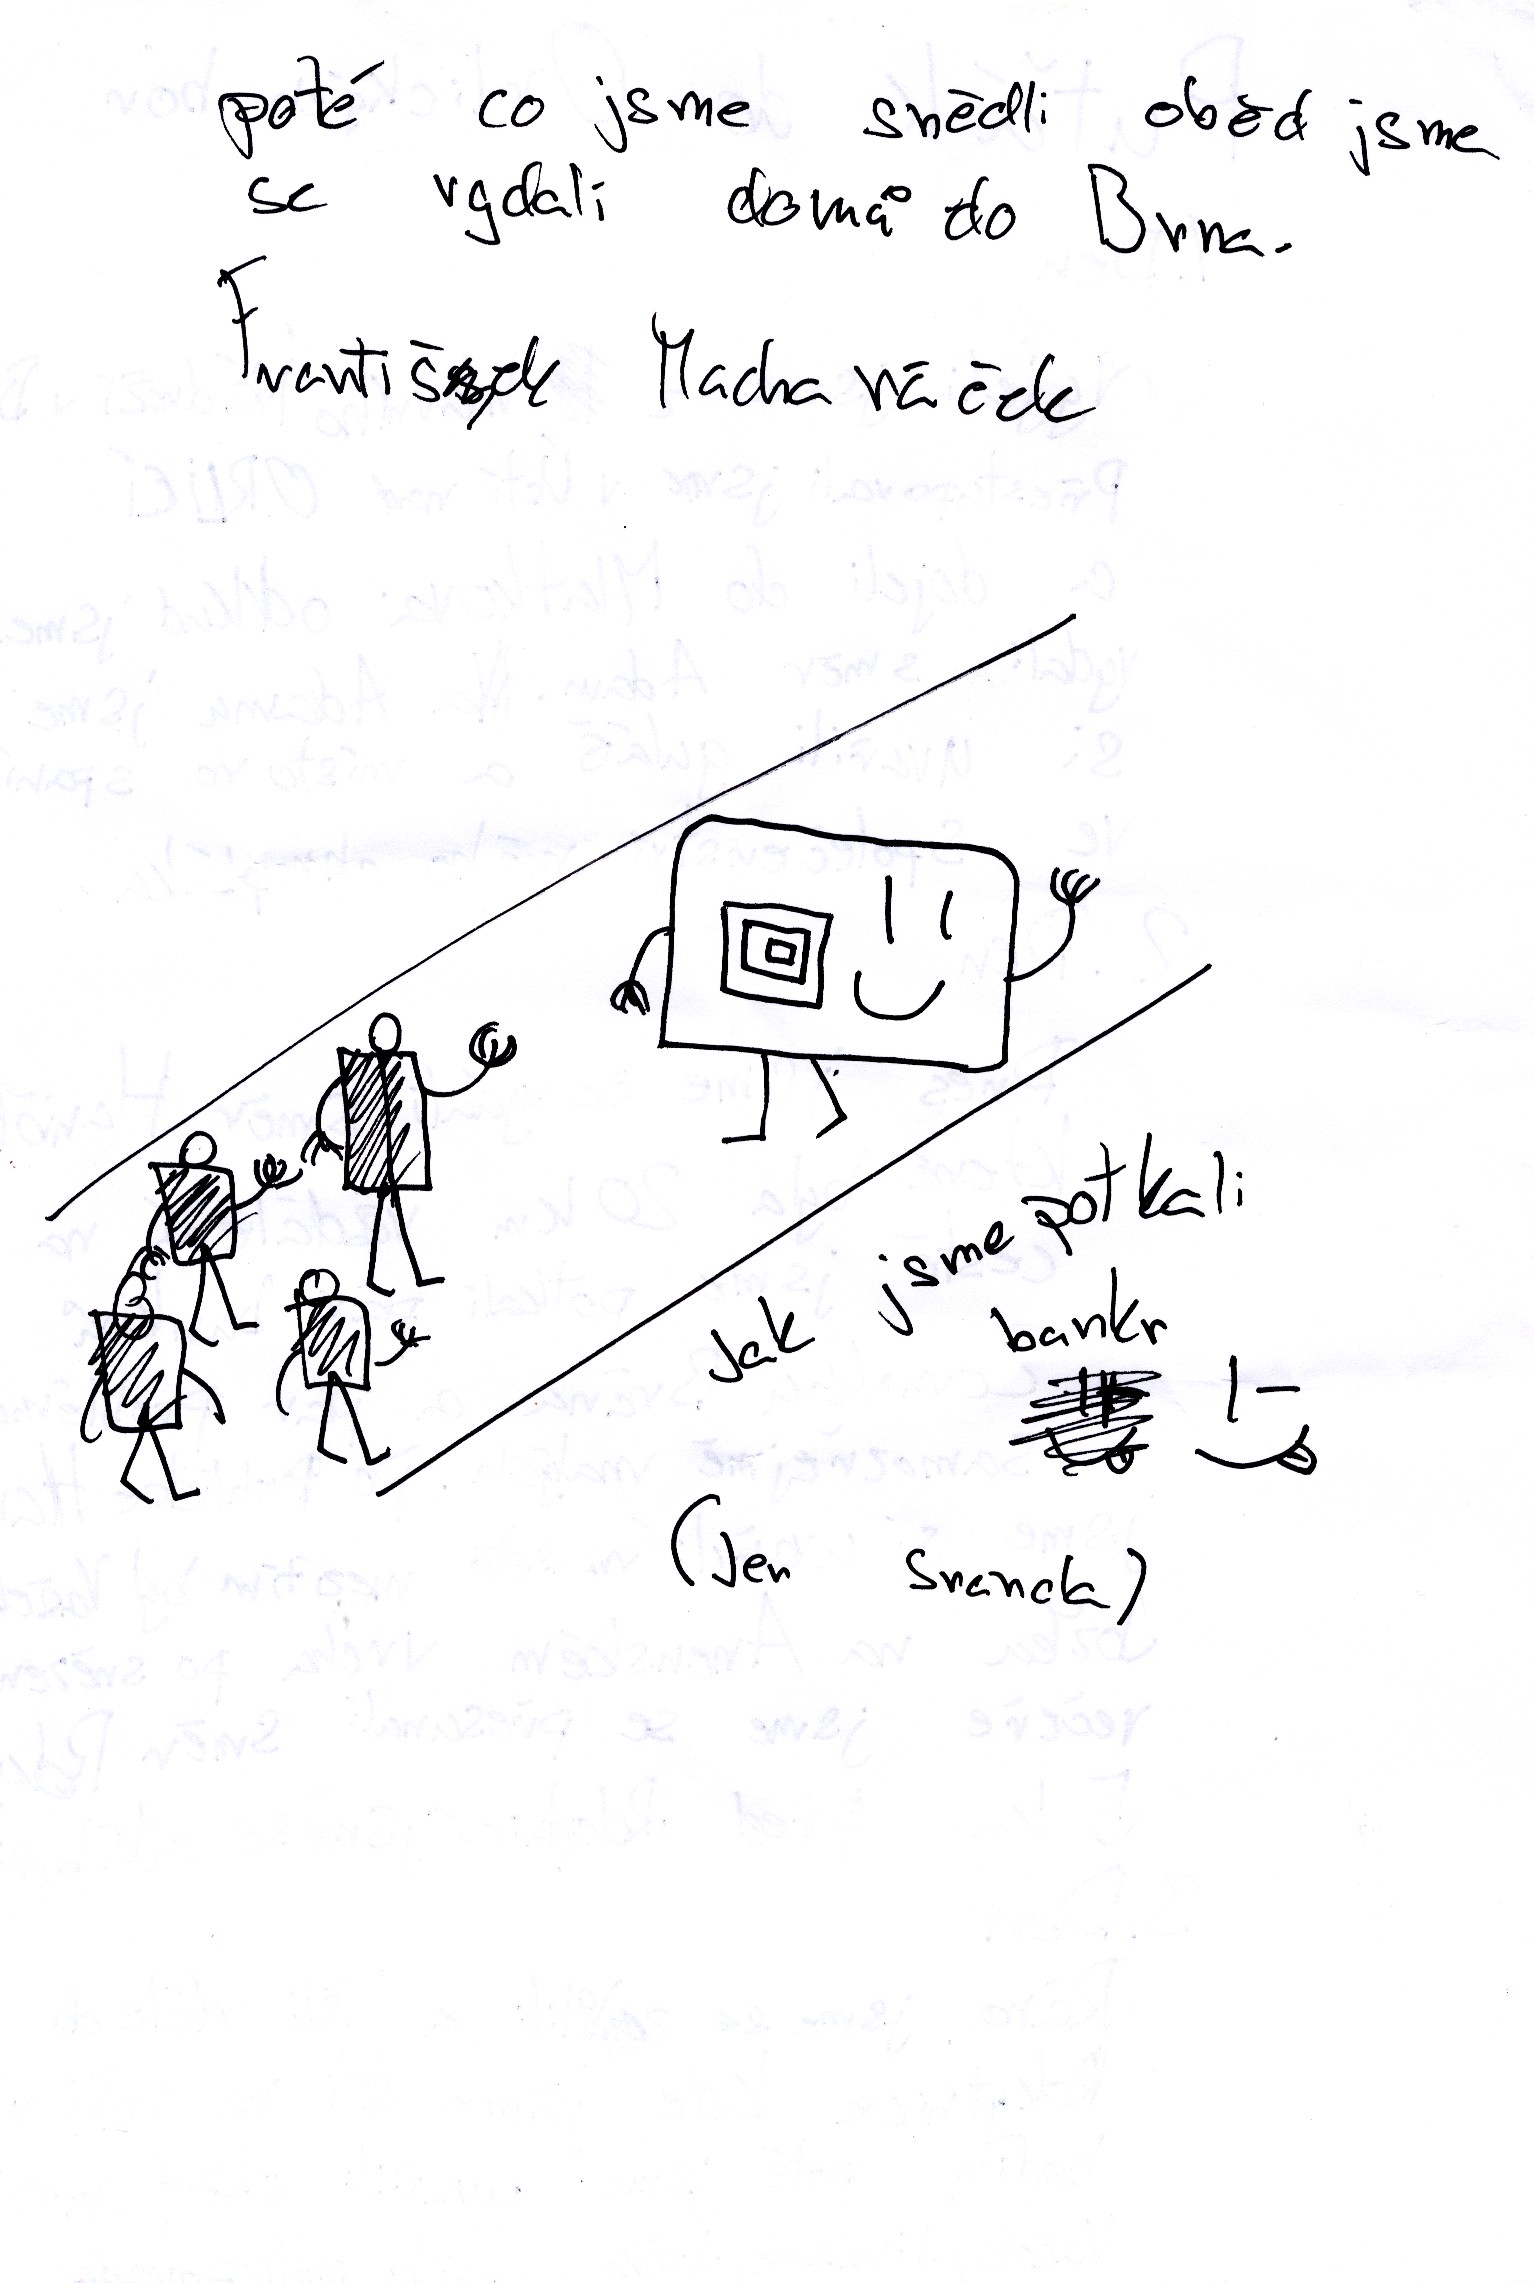 poté co jsme snědli oběd jsme
se vydali domů do Brna.
František Macha náček
Jak jsme potkali
bankr
(Jen sranda)